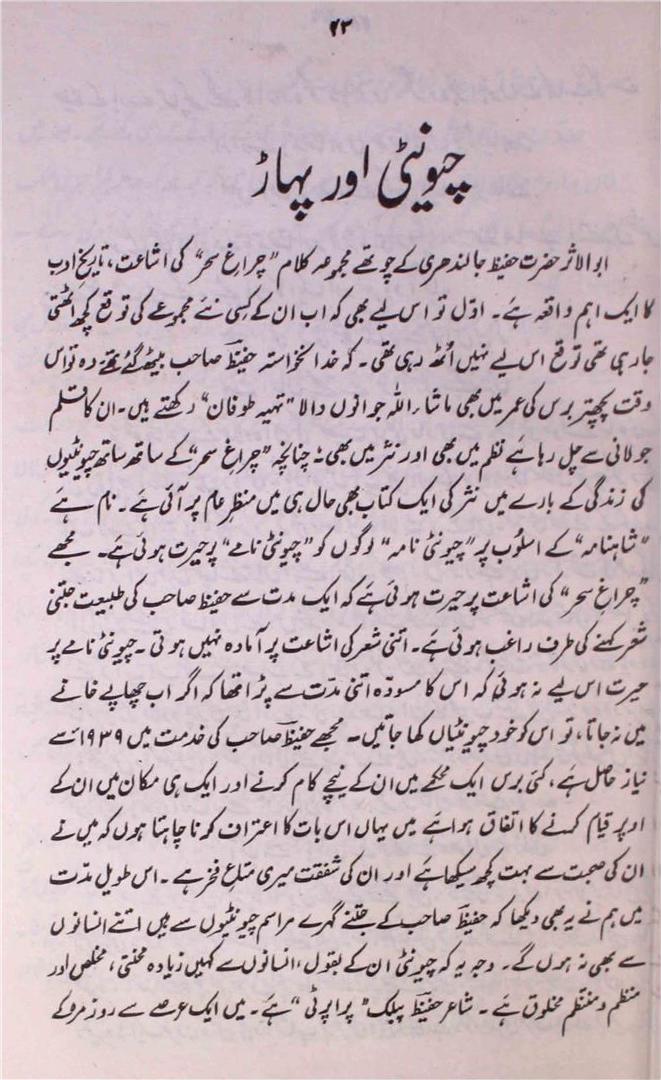 ۴۳
چیونٹی اور پہاڑ
ابوالاثر حضرت حفیظ جالندھری کے چوتھے مجموعہ کلام ”چراغِ سحر“ کی اشاعت، تاریخِ ادب
کا ایک اہم واقعہ ہے۔ اوّل تو اس لیے بھی کہ اب ان کے کسی نئے مجموعے کی توقع کچھ اٹھتی
جا رہی تھی توقع اس لیے نہیں اُٹھ رہی تھی۔ کہ خدانخواستہ حفیظؔ صاحب بیٹھ گئے تھے وہ تو اس
وقت پچھتر برس کی عمر میں بھی ماشاء اللہ جوانوں والا ”تہیہ طوفان“ رکھتے ہیں۔ ان کا قلم
جولانی سے چل رہا ہے نظم میں بھی اور نثر میں بھی۔ چنانچہ ”چراغِ سحر“ کے ساتھ ساتھ چیونٹیوں
کی زندگی کے بارے میں نثر کی ایک کتاب بھی حال ہی میں منظرِ عام پر آئی ہے۔ نام ہے
”شاہنامہ“ کے اسلوب پر ”چیونٹی نامہ“ لوگوں کو ”چیونٹی نامے“ پر حیرت ہوئی ہے۔ مجھے
”چراغِ سحر“ کی اشاعت پر حیرت ہوئی ہے کہ ایک مدت سے حفیظ صاحب کی طبیعت جتنی
شعر کہنے کی طرف راغب ہوئی ہے۔ اتنی شعر کی اشاعت پر آمادہ نہیں ہوتی۔ چیونٹی نامے پر
حیرت اس لیے نہ ہوئی کہ اس کا مسودہ اتنی مدّت سے پڑا تھا کہ اگر اب چھاپے خانے
میں نہ جاتا، تو اس کو خود چیونٹیاں کھا جاتیں۔ مجھے حفیظؔ صاحب کی خدمت میں ۱۹۳۹ء سے
نیاز حاصل ہے، کئی برس ایک محکمے میں ان کے نیچے کام کرنے اور ایک ہی مکان میں ان کے
اوپر قیام کرنے کا اتفاق ہوا ہے میں یہاں اس بات کا اعتراف کرنا چاہتا ہوں کہ میں نے
ان کی صحبت سے بہت کچھ سیکھا ہے اور ان کی شفقت میری متاعِ فخر ہے۔ اس طویل مدّت
میں ہم نے یہ بھی دیکھا کہ حفیظؔ صاحب کے جتنے گہرے مراسم چیونٹیوں سے ہیں اتنے انسانوں
سے بھی نہ ہوں گے۔ وجہ یہ کہ چیونٹی ان کے بقول، انسانوں سے کہیں زیادہ محنتی، مخلص اور
منظم و منتظم مخلوق ہے۔ شاعر حفیظؔ پبلک ”پراپرٹی“ ہے۔ میں ایک عرصے سے روزمرہ کے